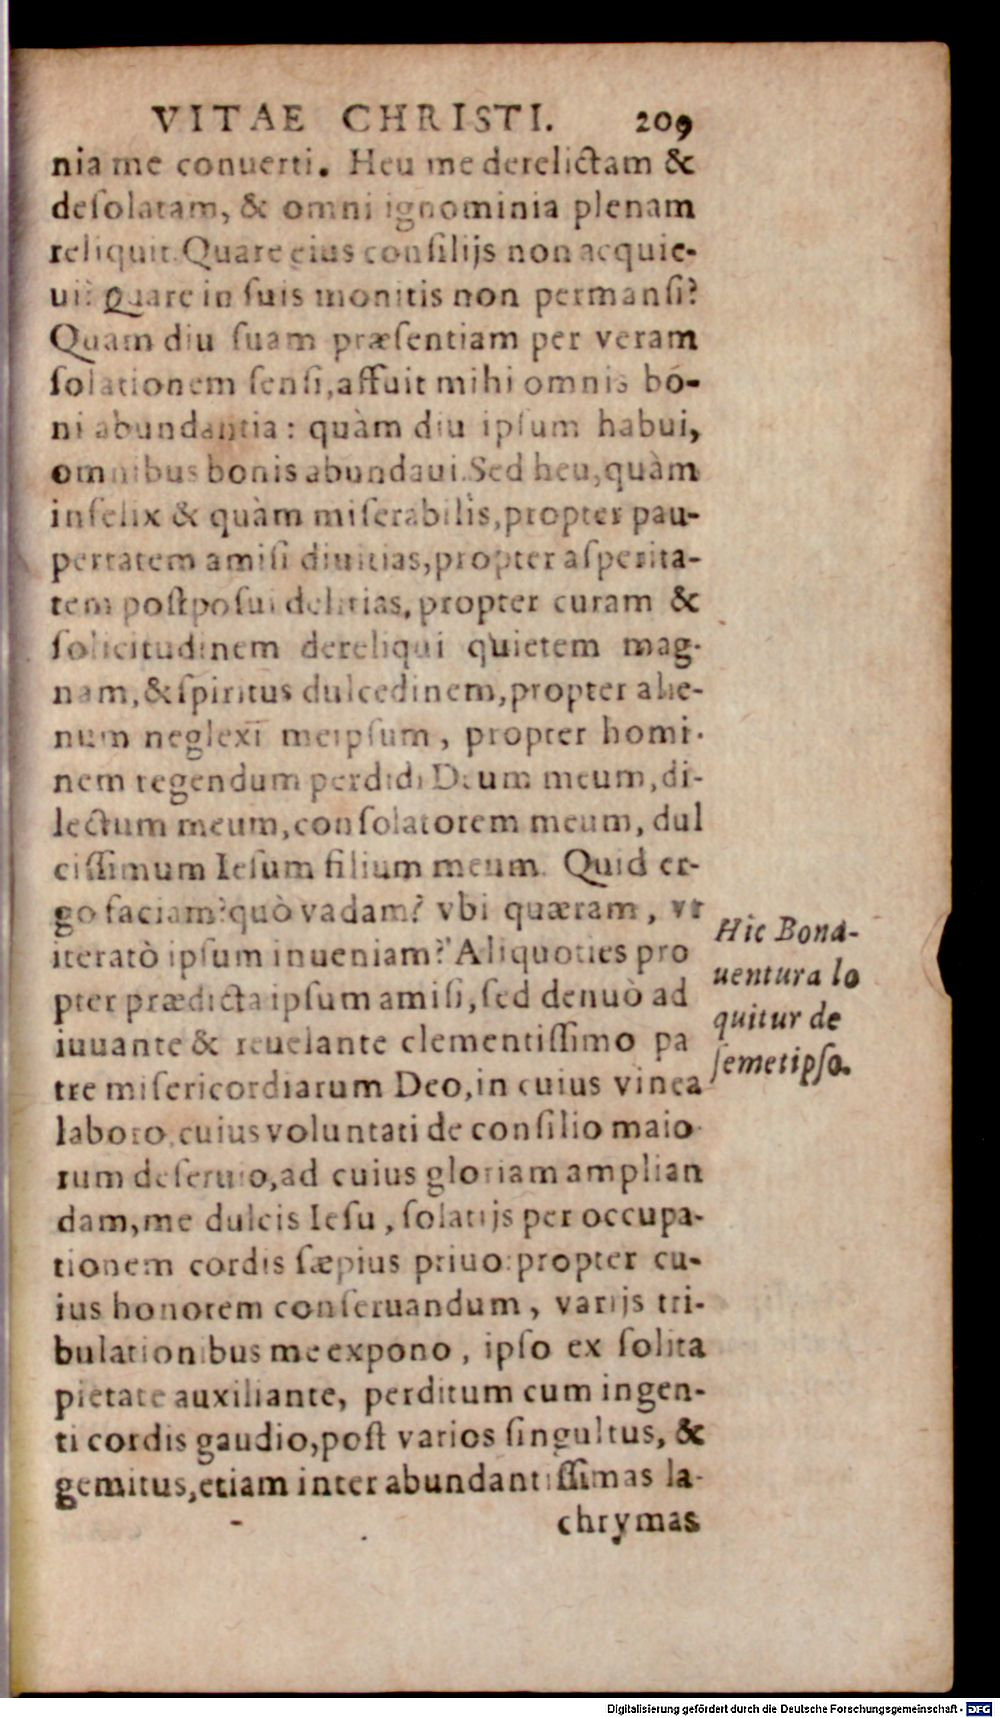 VITAE CHRISTI. 209
nia me conuerti. Heu me derelictam &
desolatam, & omni ignominia plenam
reliquit. Quare eius consilijs non acquie-
ui? Quare in suis monitis non permansi?
Quam diu suam præsentiam per veram
solationem sensi, affuit mihi omnis bo-
ni abundantia: quàm diu ipsum habui,
omnibus bonis abundaui. Sed heu, quàm
infelix & quàm miserabilis, propter pau-
pertatem amisi diuitias, propter asperita-
tem postposui delitias, propter curam &
solicitudinem dereliqui quietem mag-
nam, & spiritus dulcedinem, propter alie-
num neglexi meipsum, propter homi-
nem tegendum perdidi Deum meum, di-
lectum meum, consolatorem meum, dul
cissimum Iesum filium meum. Quid er-
go faciam? quò vadam? vbi quæram, vt
iteratò ipsum inueniam? Aliquoties pro
pter prædicta ipsum amisi, sed denuò ad
iuuante & reuelante clementissimo pa
tre misericordiarum Deo, in cuius vinea
laboro, cuius voluntati de consilio maio-
rum deseruio, ad cuius gloriam amplian
dam, me dulcis Iesu, solatijs per occupa-
tionem cordis sæpius priuo: propter cu-
ius honorem conseruandum, varijs tri-
bulationibus me expono, ipso ex solita
pietate auxiliante, perditum cum ingen-
ti cordis gaudio, post varios singultus, &
gemitus, etiam inter abundantissimas la-
chrymas
Hic Bona-
uentura lo
quitur de
semetipso.
Digitalisierung gefördert durch die Deutsche Forschungsgemeinschaft - DFG